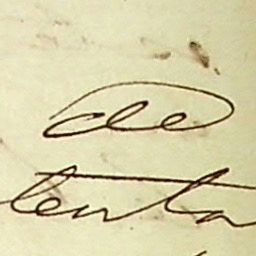 de
tenta